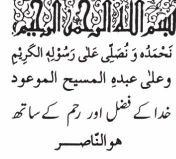 بسم الله الرحمن الرحيم
نَحْمَدُهٗ وَ نُصَلِّى عَلٰى رَسُوْلِهِ الْكَرِيْمِ
وعلٰى عبدہِ المسيح الموعود
خدا کے فضل اور رحم کے ساتھ
هوالنّاصر